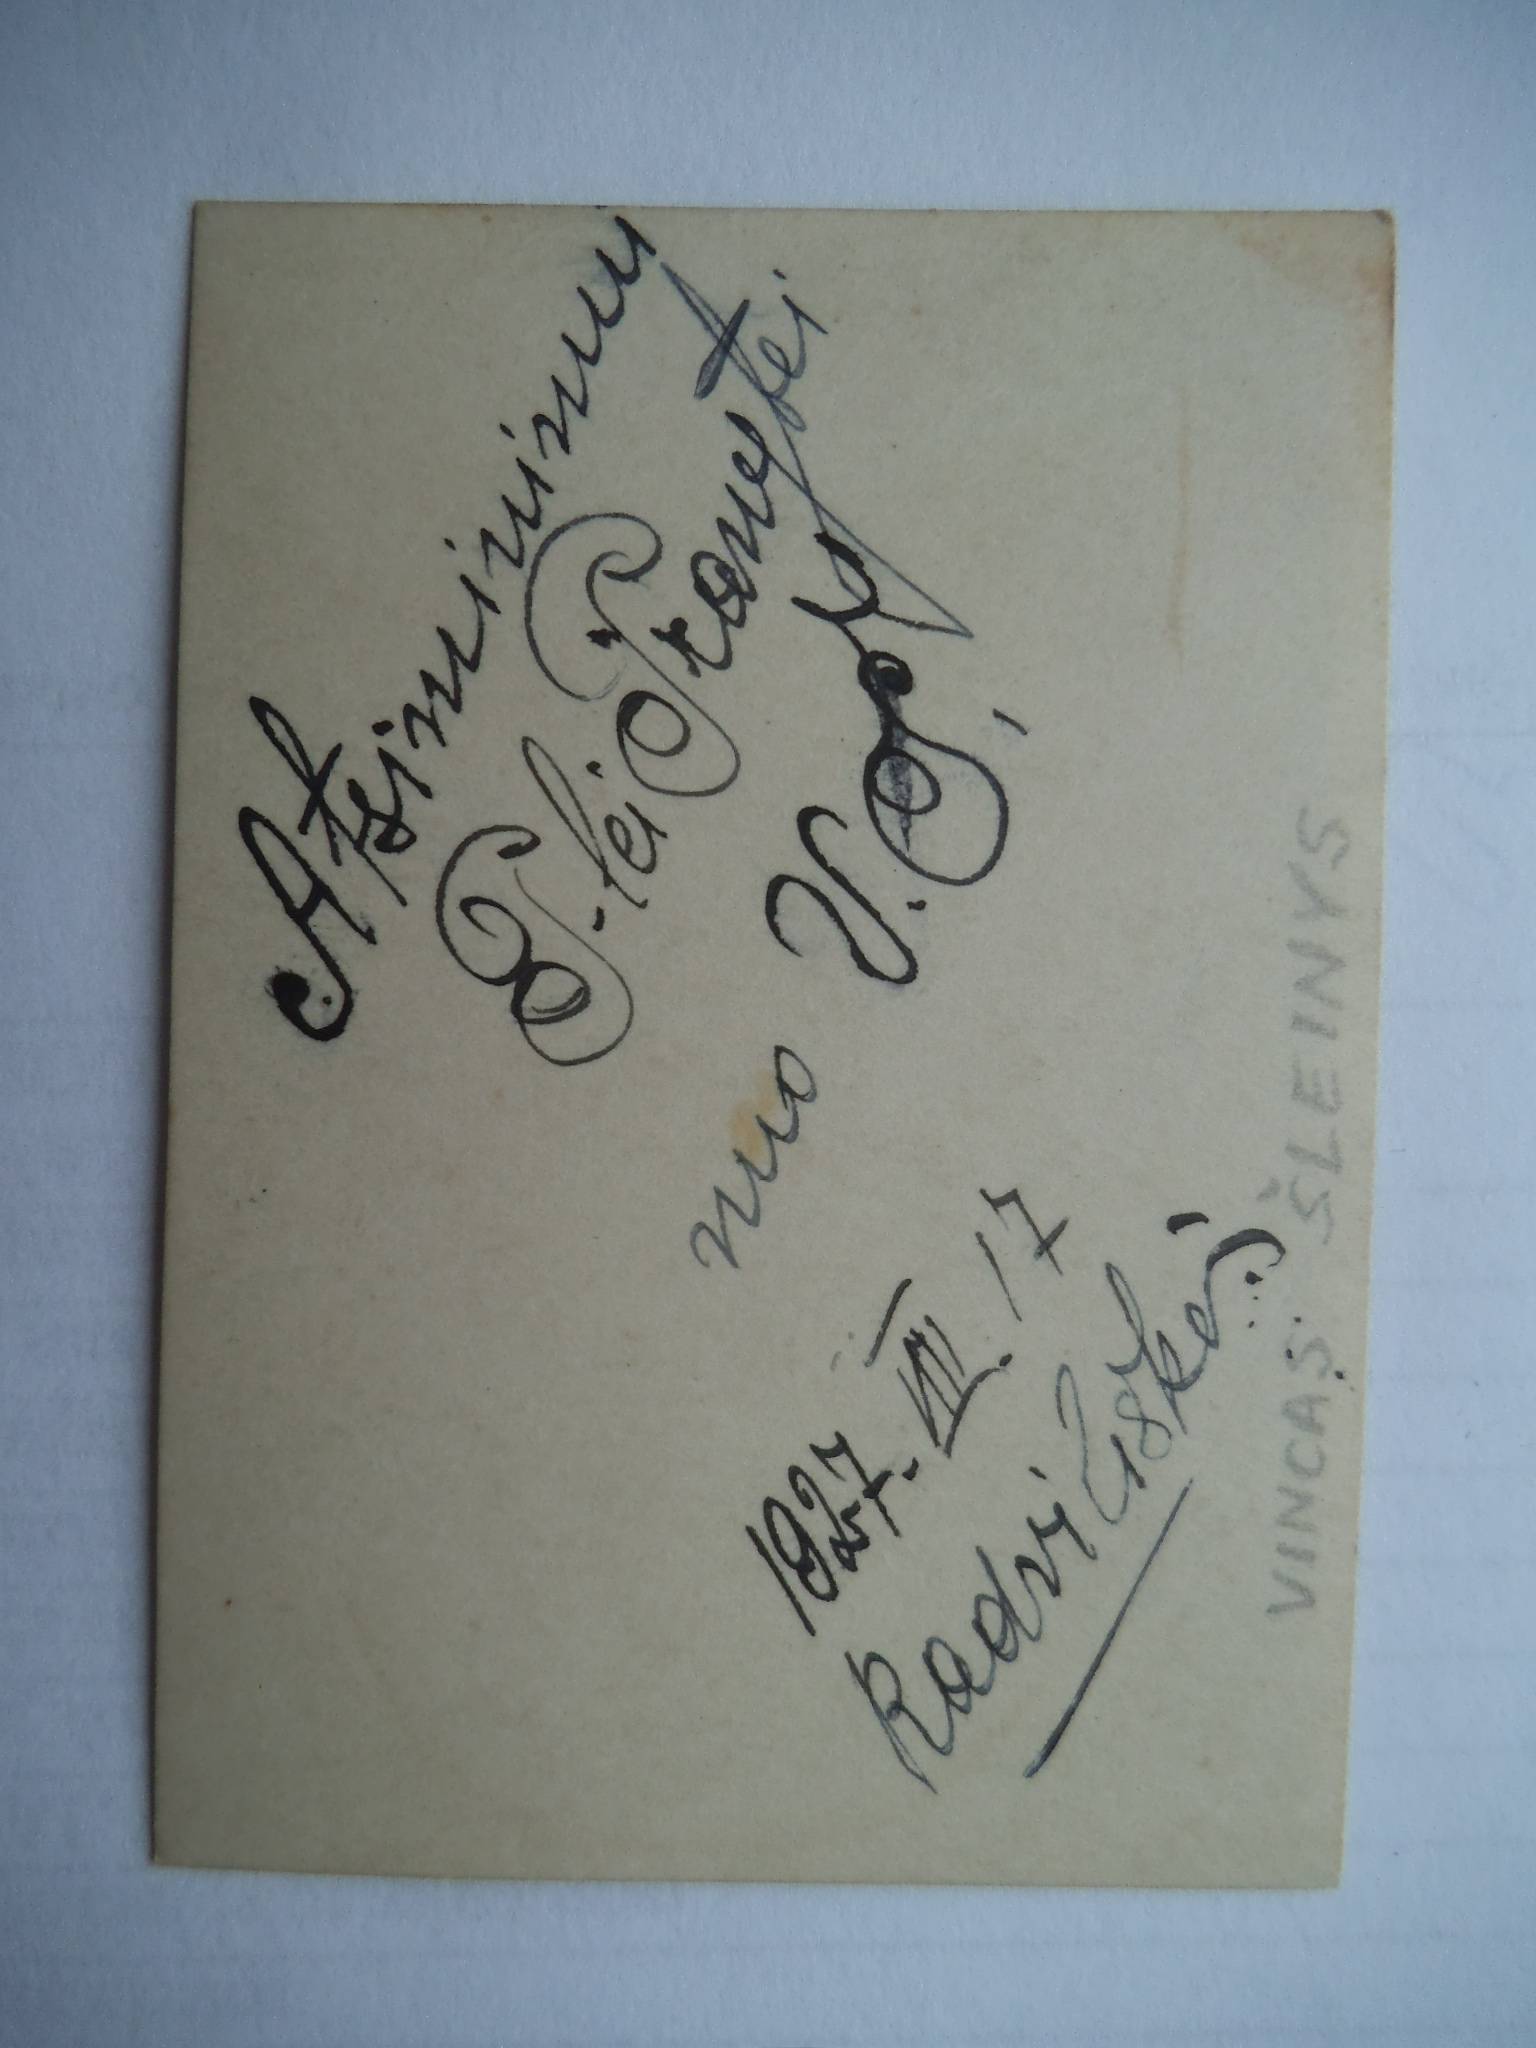 Atsiminimui
P-lei Pranytei
nuo V. Š.
1927. VIII. 17
Radviliškej
VINCAS ŠLEINYS